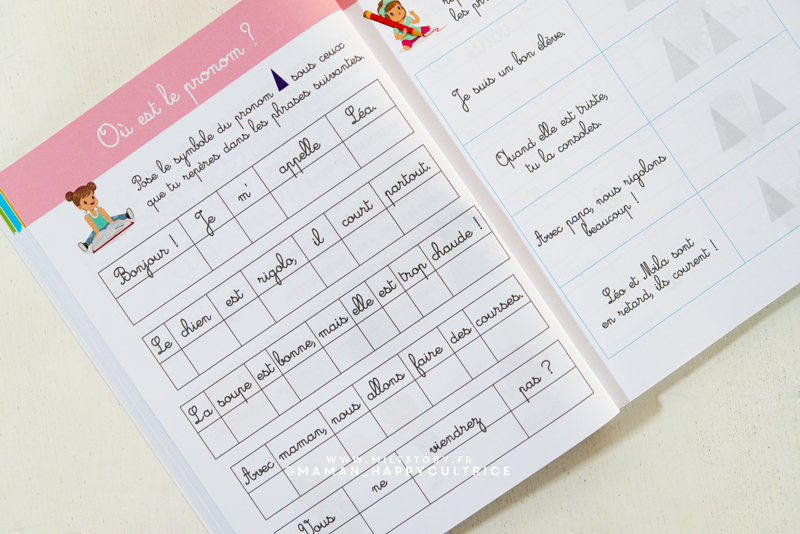 Où est le pronom ?
Pose le symbole du pronom sous ceux
que tu repères dans les phrases suivantes.
Bonjour ! Je m' appelle Léa.
Le chien est rigolo, il court partout.
La soupe est bonne, mais elle est trop chaude !
Avec maman, nous allons faire des courses.
Vous ne viendrez pas ?
les
Je suis un bon élève.
Quand elle est triste,
tu la consoles.
Avec papa, nous rigolons
beaucoup !
Léo et Mila sont
en retard, ils courent !
WWW.MILESTORY.FR
@MAMAN_HAPPYCULTRICE